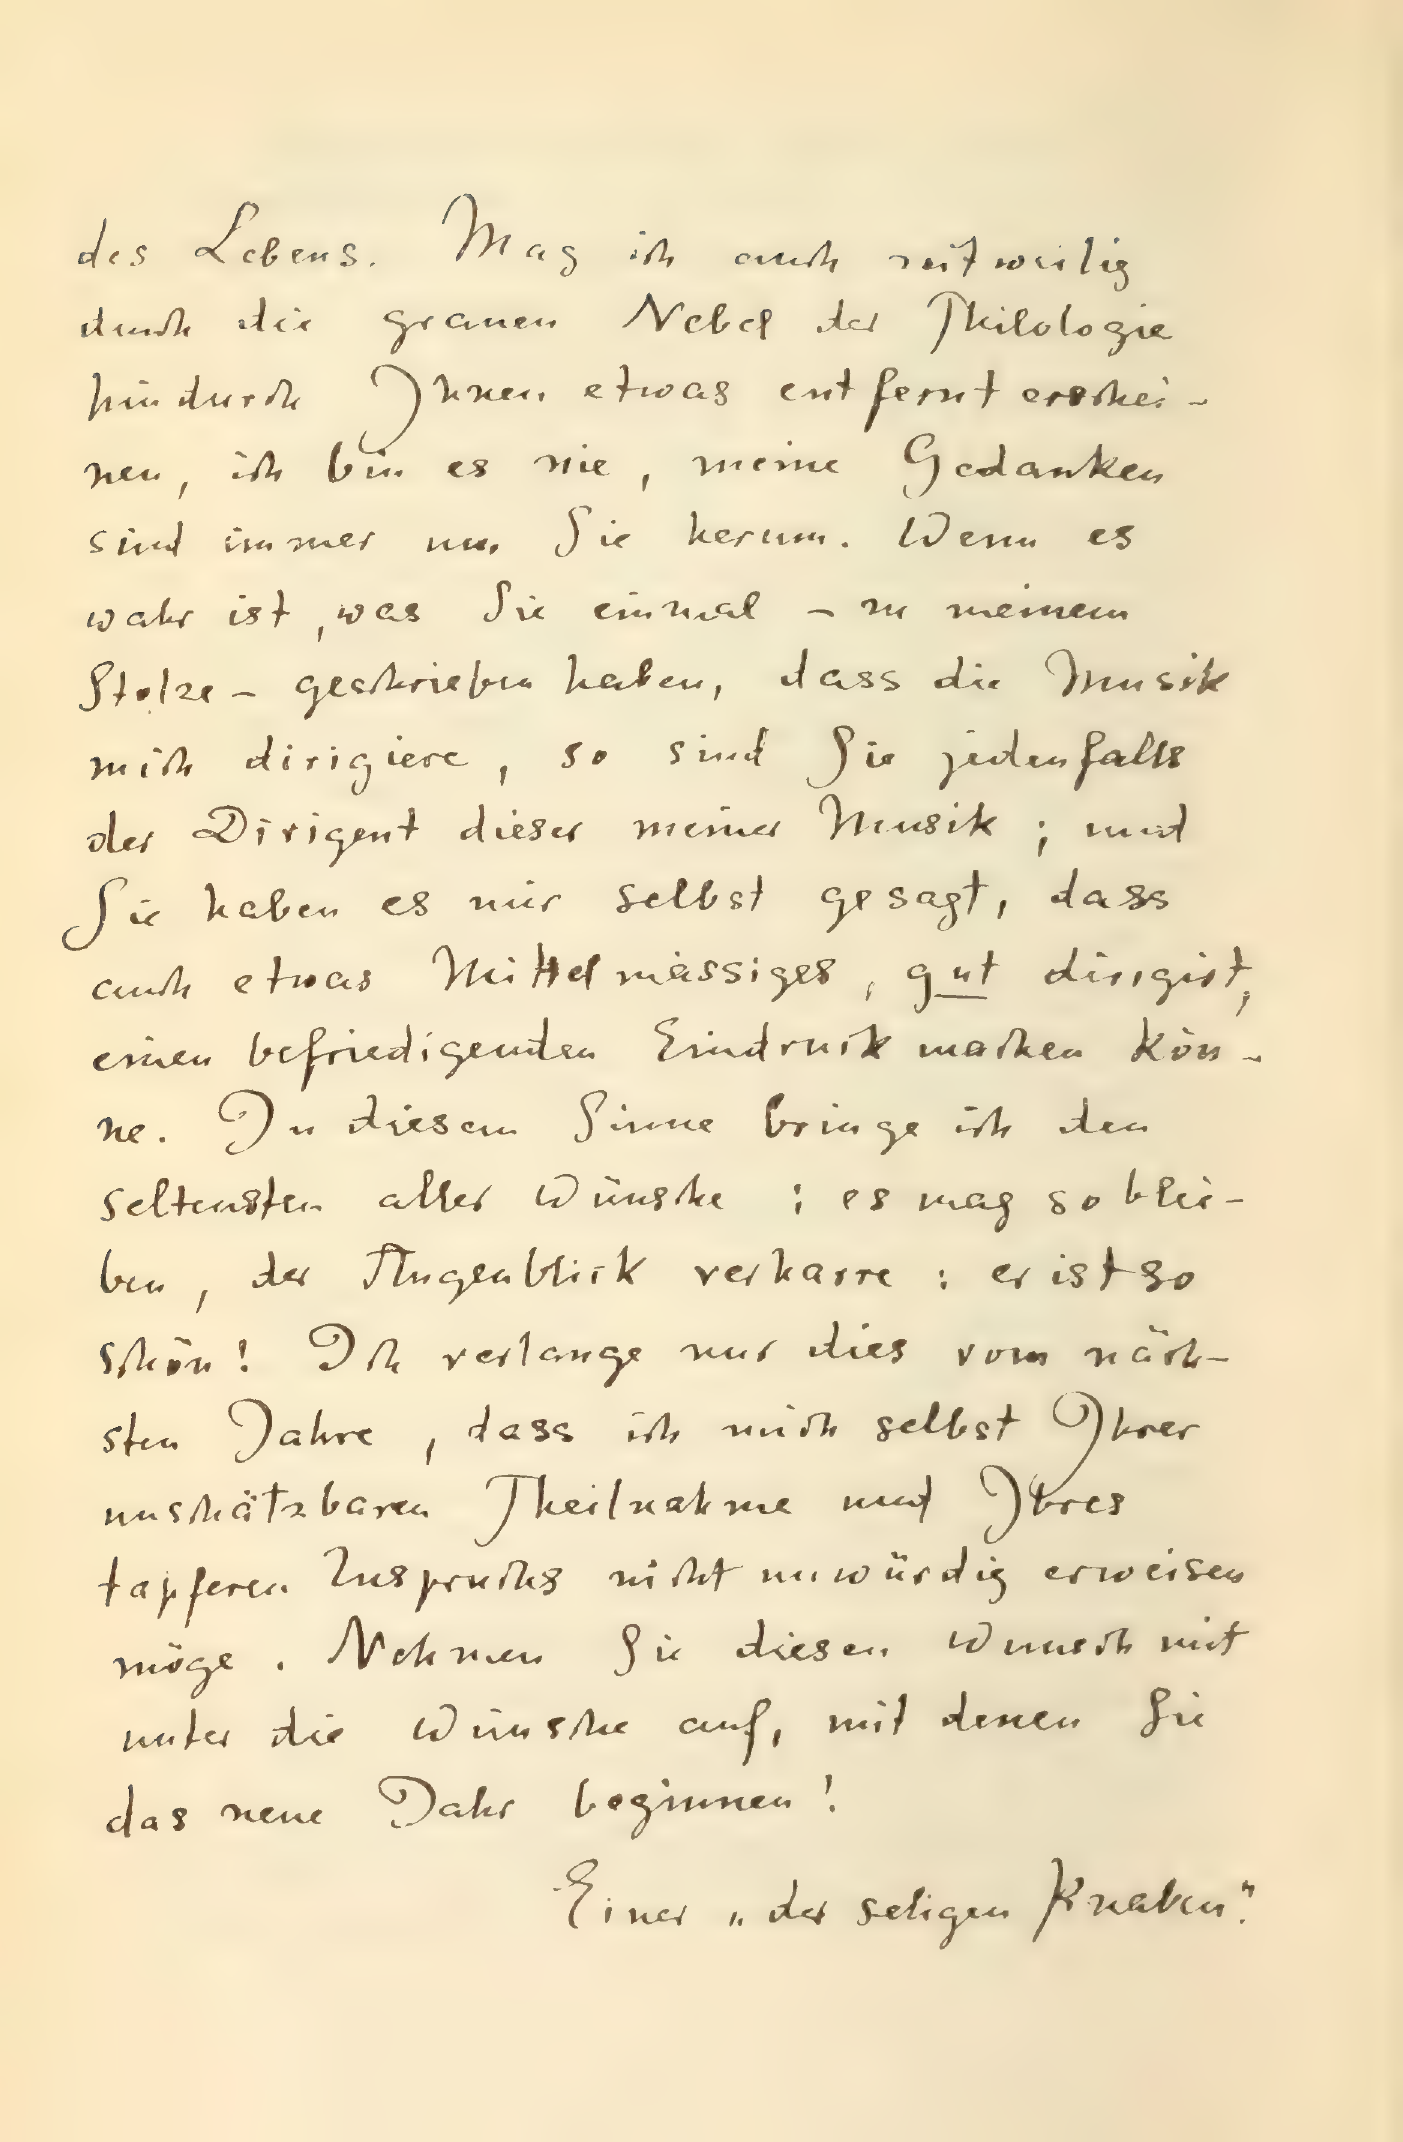 des Lebens. Mag ich auch zeitweilig
durch die grauen Nebel der Philologie
hindurch Ihnen etwas entfernt erschei-
nen, ich bin es nie, meine Gedanken
sind immer um Sie herum. Wenn es
wahr ist, was Sie einmal – zu meinem
Stolze – geschrieben haben, dass die Musik
mich dirigiere, so sind Sie jedenfalls
der Dirigent dieser meiner Musik; und
Sie haben es mir selbst gesagt, dass
auch etwas Mittelmässiges, gut dirigirt,
einen befriedigenden Eindruck machen kön-
ne. In diesem Sinne bringe ich den
seltensten aller Wünsche: es mag so blei-
ben, der Augenblick verharre: er ist so
schön! Ich verlange nur dies vom näch-
sten Jahre, dass ich mich selbst Ihrer
unschätzbaren Theilnahme und Ihres
tapferen Zuspruchs nicht unwürdig erweisen
möge. Nehmen Sie diesen Wunsch mit
unter die Wünsche auf, mit denen Sie
das neue Jahr beginnen!
Einer „der seligen Knaben".